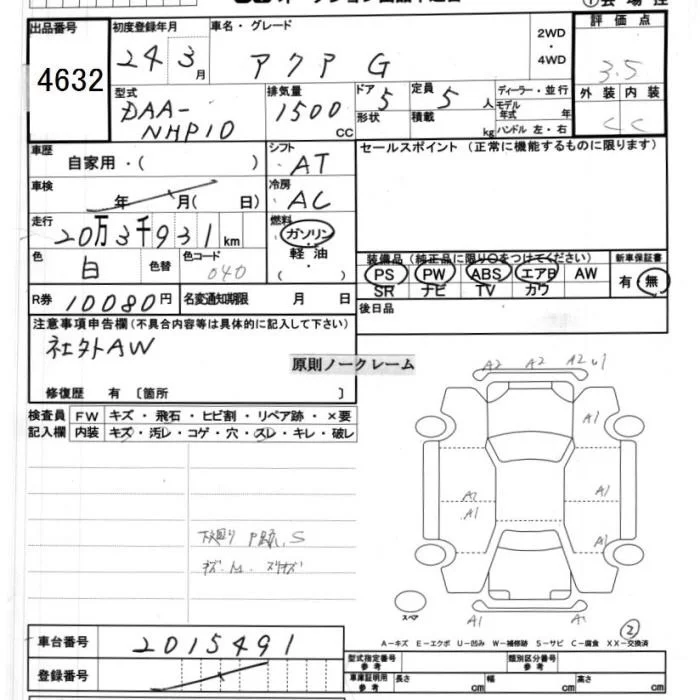 出品番号
4632
初度登録年月
24 3月
車名・グレード
アクア G
2WD
・
4WD
評価点
3.5
外装 内装
C C
型式
DAA-
NHP10
排気量
1500
CC
ドア
5
形状
定員
5人
積載
kg
ディーラー・並行
モデル
年式 年
ハンドル 左・右
車歴
自家用・( )
シフト
AT
セールスポイント (正常に機能するものに限ります)
車検
年 月( 日)
冷房
AC
走行
20万3千931km
燃料
ガソリン
・
軽油
・
( )
色
白
色替
色コード
040
装備品 (純正品に限り○をつけてください)
新車保証書
PS PW ABS エアB AW
有・無
SR ナビ TV カワ
R券 10080円
名変通知期限 月 日
後日品
注意事項申告欄(不具合内容等は具体的に記入して下さい)
社外AW
原則ノークレーム
修復歴 有 〔箇所 〕
検査員
記入欄
FW キズ・飛石・ヒビ割・リペア跡・×要
内装 キズ・汚レ・コゲ・穴・スレ・キレ・破レ
A2 A2 A2
A1
A1
A1
A1
A1
A1
A1
スペア
②
A-キズ E-エクボ U-凹み W-補修跡 S-サビ C-腐食 XX-交換済
車台番号
2015491
登録番号
型式指定番号
参考
類別区分番号
参考
車庫証明用
参考
長さ cm
幅 cm
高さ cm